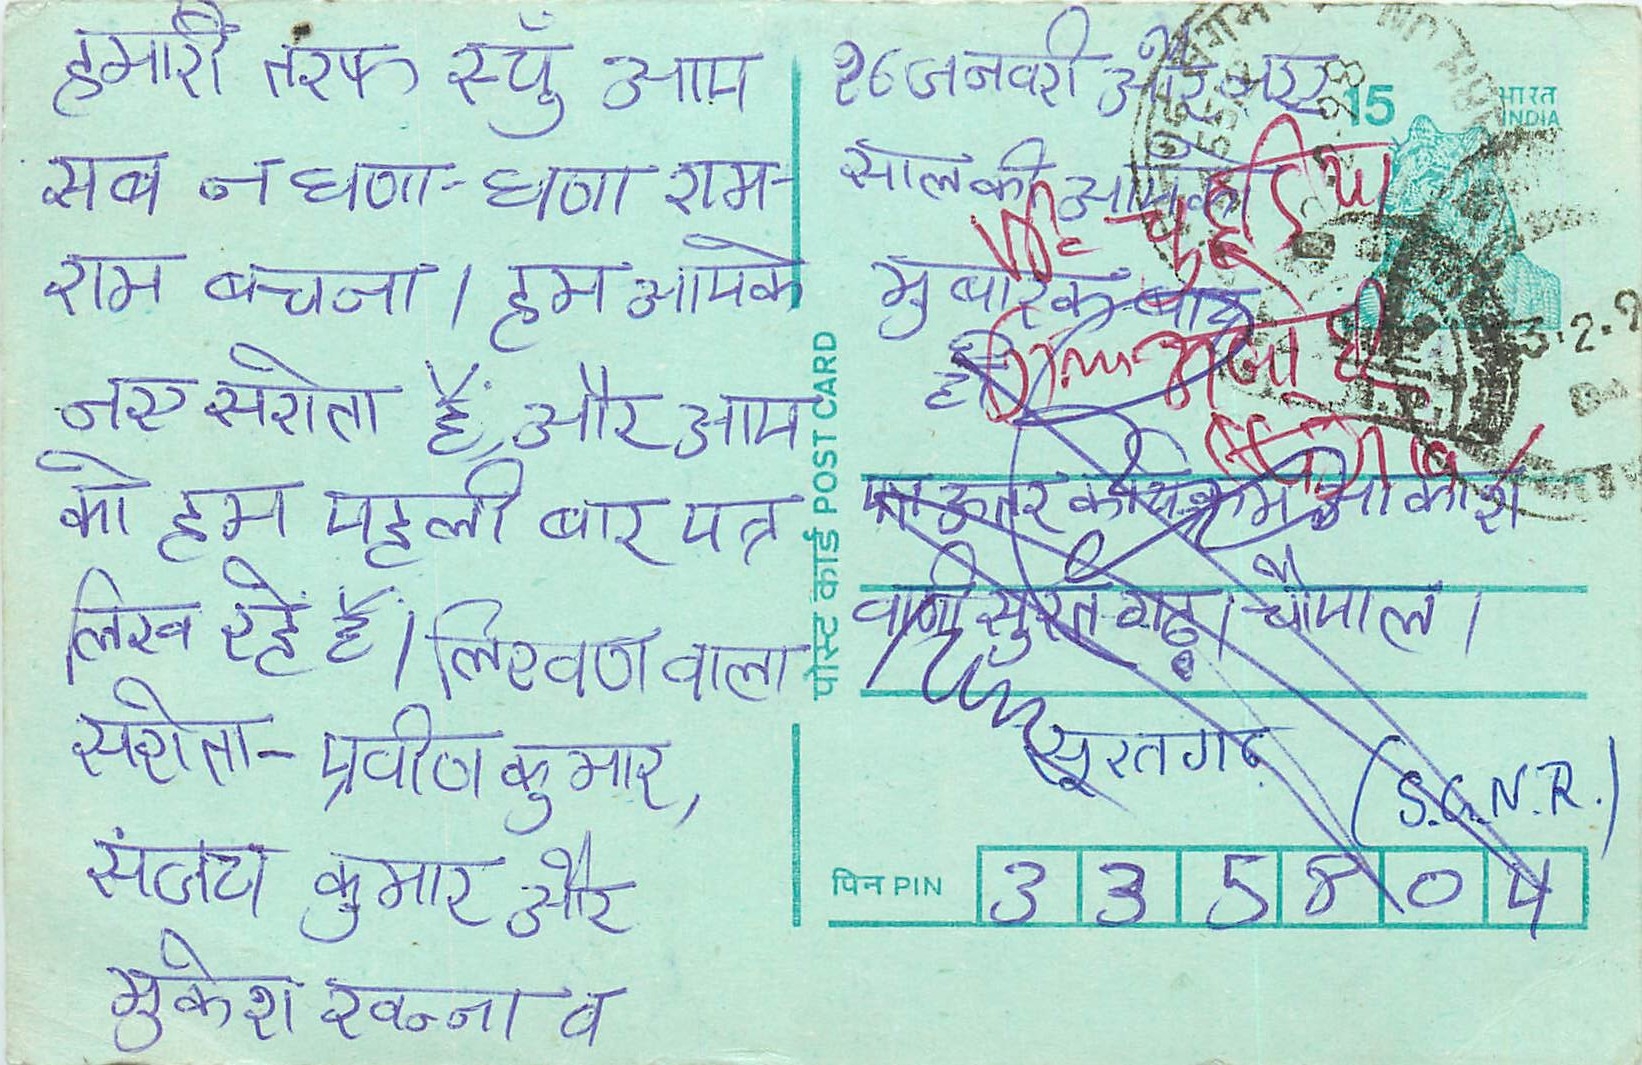 हमारी तरफ स्यूँ आप
सब न घणा-घणा राम-
राम बचना। हम आपके
नए सरोता हैं, और आप
को हम पहली बार पत्र
लिख रहें हैं। लिखण वाला
सरोता- प्रवीण कुमार,
संजय कुमार और
मुकेश खन्ना व
26 जनवरी और नए
साल की आपको
मुबारक बाद
है।
15
भारत
INDIA
3.2.9
पोस्ट कार्ड POST CARD
पत्र उत्तर कार्यक्रम आकाश
वाणी सुरतगढ़। चौपाल।
सूरतगढ़
(S.G.N.R.)
पिन PIN 335804